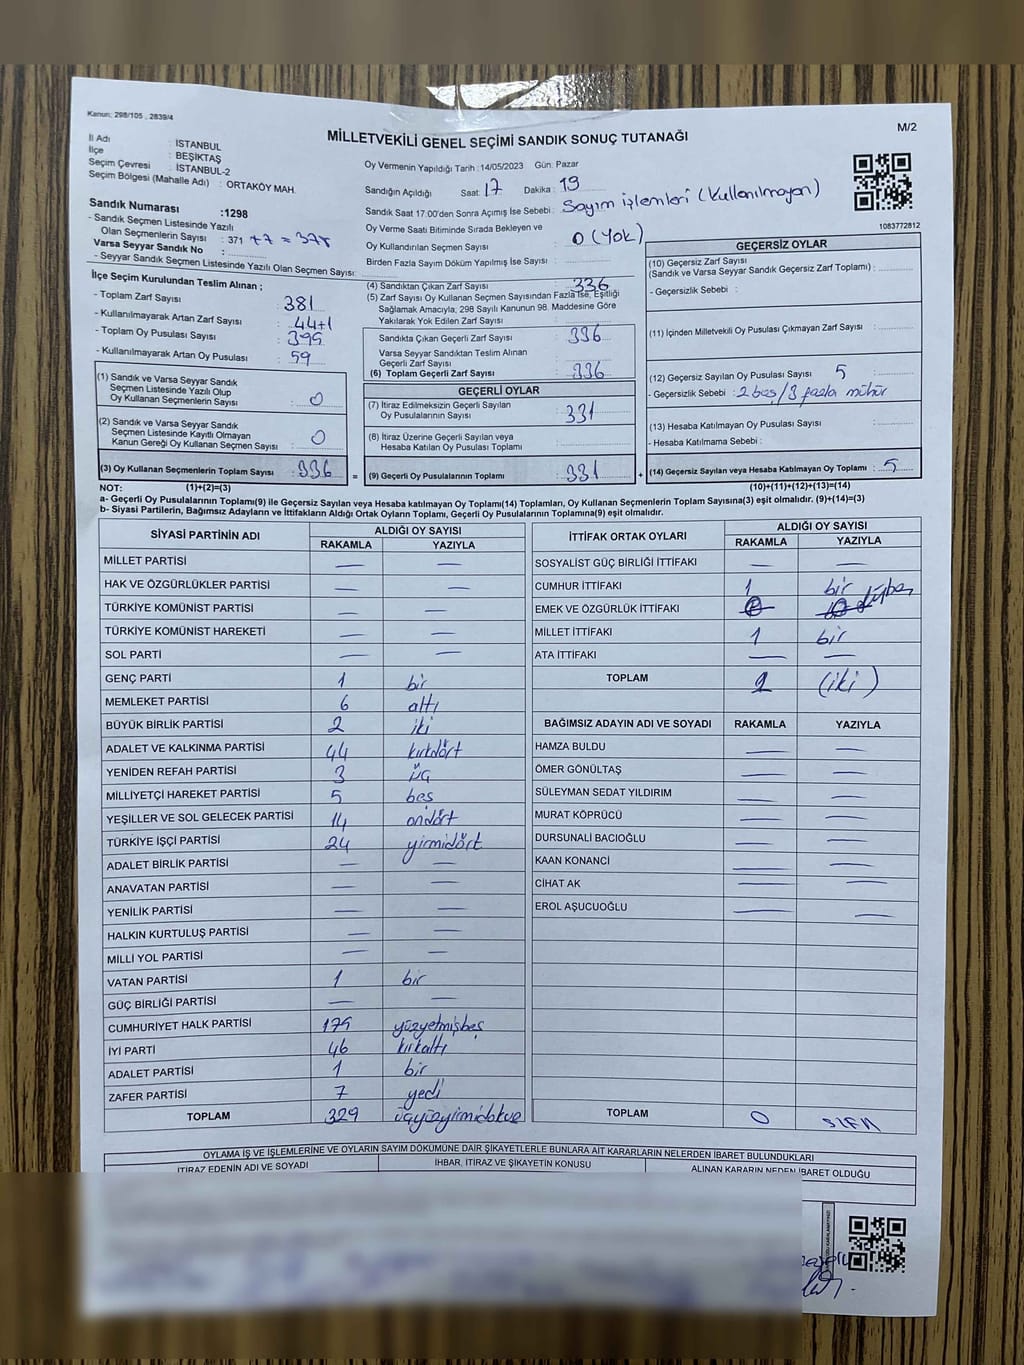 Kanun: 298/105 , 2839/4
M/2
MİLLETVEKİLİ GENEL SEÇİMİ SANDIK SONUÇ TUTANAĞI
İl Adı : İSTANBUL
İlçe : BEŞİKTAŞ
Seçim Çevresi : İSTANBUL-2
Seçim Bölgesi (Mahalle Adı) : ORTAKÖY MAH.
Sandık Numarası :1298
- Sandık Seçmen Listesinde Yazılı
Olan Seçmenlerin Sayısı : 371 +7 = 378
Varsa Seyyar Sandık No :
- Seyyar Sandık Seçmen Listesinde Yazılı Olan Seçmen Sayısı:
Oy Vermenin Yapıldığı Tarih : 14/05/2023 Gün: Pazar
Sandığın Açıldığı Saat: 17 Dakika : 19
Sandık Saat 17.00'den Sonra Açımış İse Sebebi : Sayım işlemleri (Kullanılmayan)
Oy Verme Saati Bitiminde Sırada Bekleyen ve
Oy Kullandırılan Seçmen Sayısı : 0 (Yok)
Birden Fazla Sayım Döküm Yapılmış İse Sayısı :
1083772812
İlçe Seçim Kurulundan Teslim Alınan ;
- Toplam Zarf Sayısı : 381
- Kullanılmayarak Artan Zarf Sayısı : 44+1
- Toplam Oy Pusulası Sayısı : 395
- Kullanılmayarak Artan Oy Pusulası : 59
(1) Sandık ve Varsa Seyyar Sandık
Seçmen Listesinde Yazılı Olup
Oy Kullanan Seçmenlerin Sayısı : 0
(2) Sandık ve Varsa Seyyar Sandık
Seçmen Listesinde Kayıtlı Olmayan
Kanun Gereği Oy Kullanan Seçmen Sayısı : 0
(3) Oy Kullanan Seçmenlerin Toplam Sayısı : 336
(4) Sandıktan Çıkan Zarf Sayısı : 336
(5) Zarf Sayısı Oy Kullanan Seçmen Sayısından Fazla İse, Eşitliği
Sağlamak Amacıyla, 298 Sayılı Kanunun 98. Maddesine Göre
Yakılarak Yok Edilen Zarf Sayısı :
Sandıkta Çıkan Geçerli Zarf Sayısı : 336
Varsa Seyyar Sandıktan Teslim Alınan
Geçerli Zarf Sayısı :
(6) Toplam Geçerli Zarf Sayısı : 336
GEÇERLİ OYLAR
(7) İtiraz Edilmeksizin Geçerli Sayılan
Oy Pusulalarının Sayısı : 331
(8) İtiraz Üzerine Geçerli Sayılan veya
Hesaba Katılan Oy Pusulası Toplamı :
= (9) Geçerli Oy Pusulalarının Toplamı : 331
GEÇERSİZ OYLAR
(10) Geçersiz Zarf Sayısı
(Sandık ve Varsa Seyyar Sandık Geçersiz Zarf Toplamı) :
- Geçersizlik Sebebi :
(11) İçinden Milletvekili Oy Pusulası Çıkmayan Zarf Sayısı :
(12) Geçersiz Sayılan Oy Pusulası Sayısı : 5
- Geçersizlik Sebebi : 2 boş / 3 fazla mühür
(13) Hesaba Katılmayan Oy Pusulası Sayısı :
- Hesaba Katılmama Sebebi :
+ (14) Geçersiz Sayılan veya Hesaba Katılmayan Oy Toplamı : 5
NOT: (1)+(2)=(3)
(10)+(11)+(12)+(13)=(14)
a- Geçerli Oy Pusulalarının Toplamı(9) ile Geçersiz Sayılan veya Hesaba katılmayan Oy Toplamı(14) Toplamları, Oy Kullanan Seçmenlerin Toplam Sayısına(3) eşit olmalıdır. (9)+(14)=(3)
b- Siyasi Partilerin, Bağımsız Adayların ve İttifakların Aldığı Ortak Oyların Toplamı, Geçerli Oy Pusulalarının Toplamına(9) eşit olmalıdır.
SİYASİ PARTİNİN ADI ALDIĞI OY SAYISI
RAKAMLA YAZIYLA
MİLLET PARTİSİ — —
HAK VE ÖZGÜRLÜKLER PARTİSİ — —
TÜRKİYE KOMÜNİST PARTİSİ — —
TÜRKİYE KOMÜNİST HAREKETİ — —
SOL PARTİ — —
GENÇ PARTİ 1 bir
MEMLEKET PARTİSİ 6 altı
BÜYÜK BİRLİK PARTİSİ 2 iki
ADALET VE KALKINMA PARTİSİ 44 kırkdört
YENİDEN REFAH PARTİSİ 3 üç
MİLLİYETÇİ HAREKET PARTİSİ 5 beş
YEŞİLLER VE SOL GELECEK PARTİSİ 14 ondört
TÜRKİYE İŞÇİ PARTİSİ 24 yirmidört
ADALET BİRLİK PARTİSİ — —
ANAVATAN PARTİSİ — —
YENİLİK PARTİSİ — —
HALKIN KURTULUŞ PARTİSİ — —
MİLLİ YOL PARTİSİ — —
VATAN PARTİSİ 1 bir
GÜÇ BİRLİĞİ PARTİSİ — —
CUMHURİYET HALK PARTİSİ 175 yüzyetmişbeş
İYİ PARTİ 46 kırkaltı
ADALET PARTİSİ 1 bir
ZAFER PARTİSİ 7 yedi
TOPLAM 329 üçyüzyirmidokuz
İTTİFAK ORTAK OYLARI ALDIĞI OY SAYISI
RAKAMLA YAZIYLA
SOSYALİST GÜÇ BİRLİĞİ İTTİFAKI — —
CUMHUR İTTİFAKI 1 bir
EMEK VE ÖZGÜRLÜK İTTİFAKI
MİLLET İTTİFAKI 1 bir
ATA İTTİFAKI — —
TOPLAM 2 (iki)
BAĞIMSIZ ADAYIN ADI VE SOYADI RAKAMLA YAZIYLA
HAMZA BULDU — —
ÖMER GÖNÜLTAŞ — —
SÜLEYMAN SEDAT YILDIRIM — —
MURAT KÖPRÜCÜ — —
DURSUNALİ BACIOĞLU — —
KAAN KONANCİ — —
CİHAT AK — —
EROL AŞUCUOĞLU — —
TOPLAM 0 sıfır
OYLAMA İŞ VE İŞLEMLERİNE VE OYLARIN SAYIM DÖKÜMÜNE DAİR ŞİKAYETLERLE BUNLARA AİT KARARLARIN NELERDEN İBARET BULUNDUKLARI
İTİRAZ EDENİN ADI VE SOYADI İHBAR, İTİRAZ VE ŞİKAYETİN KONUSU ALINAN KARARIN NEDEN İBARET OLDUĞU